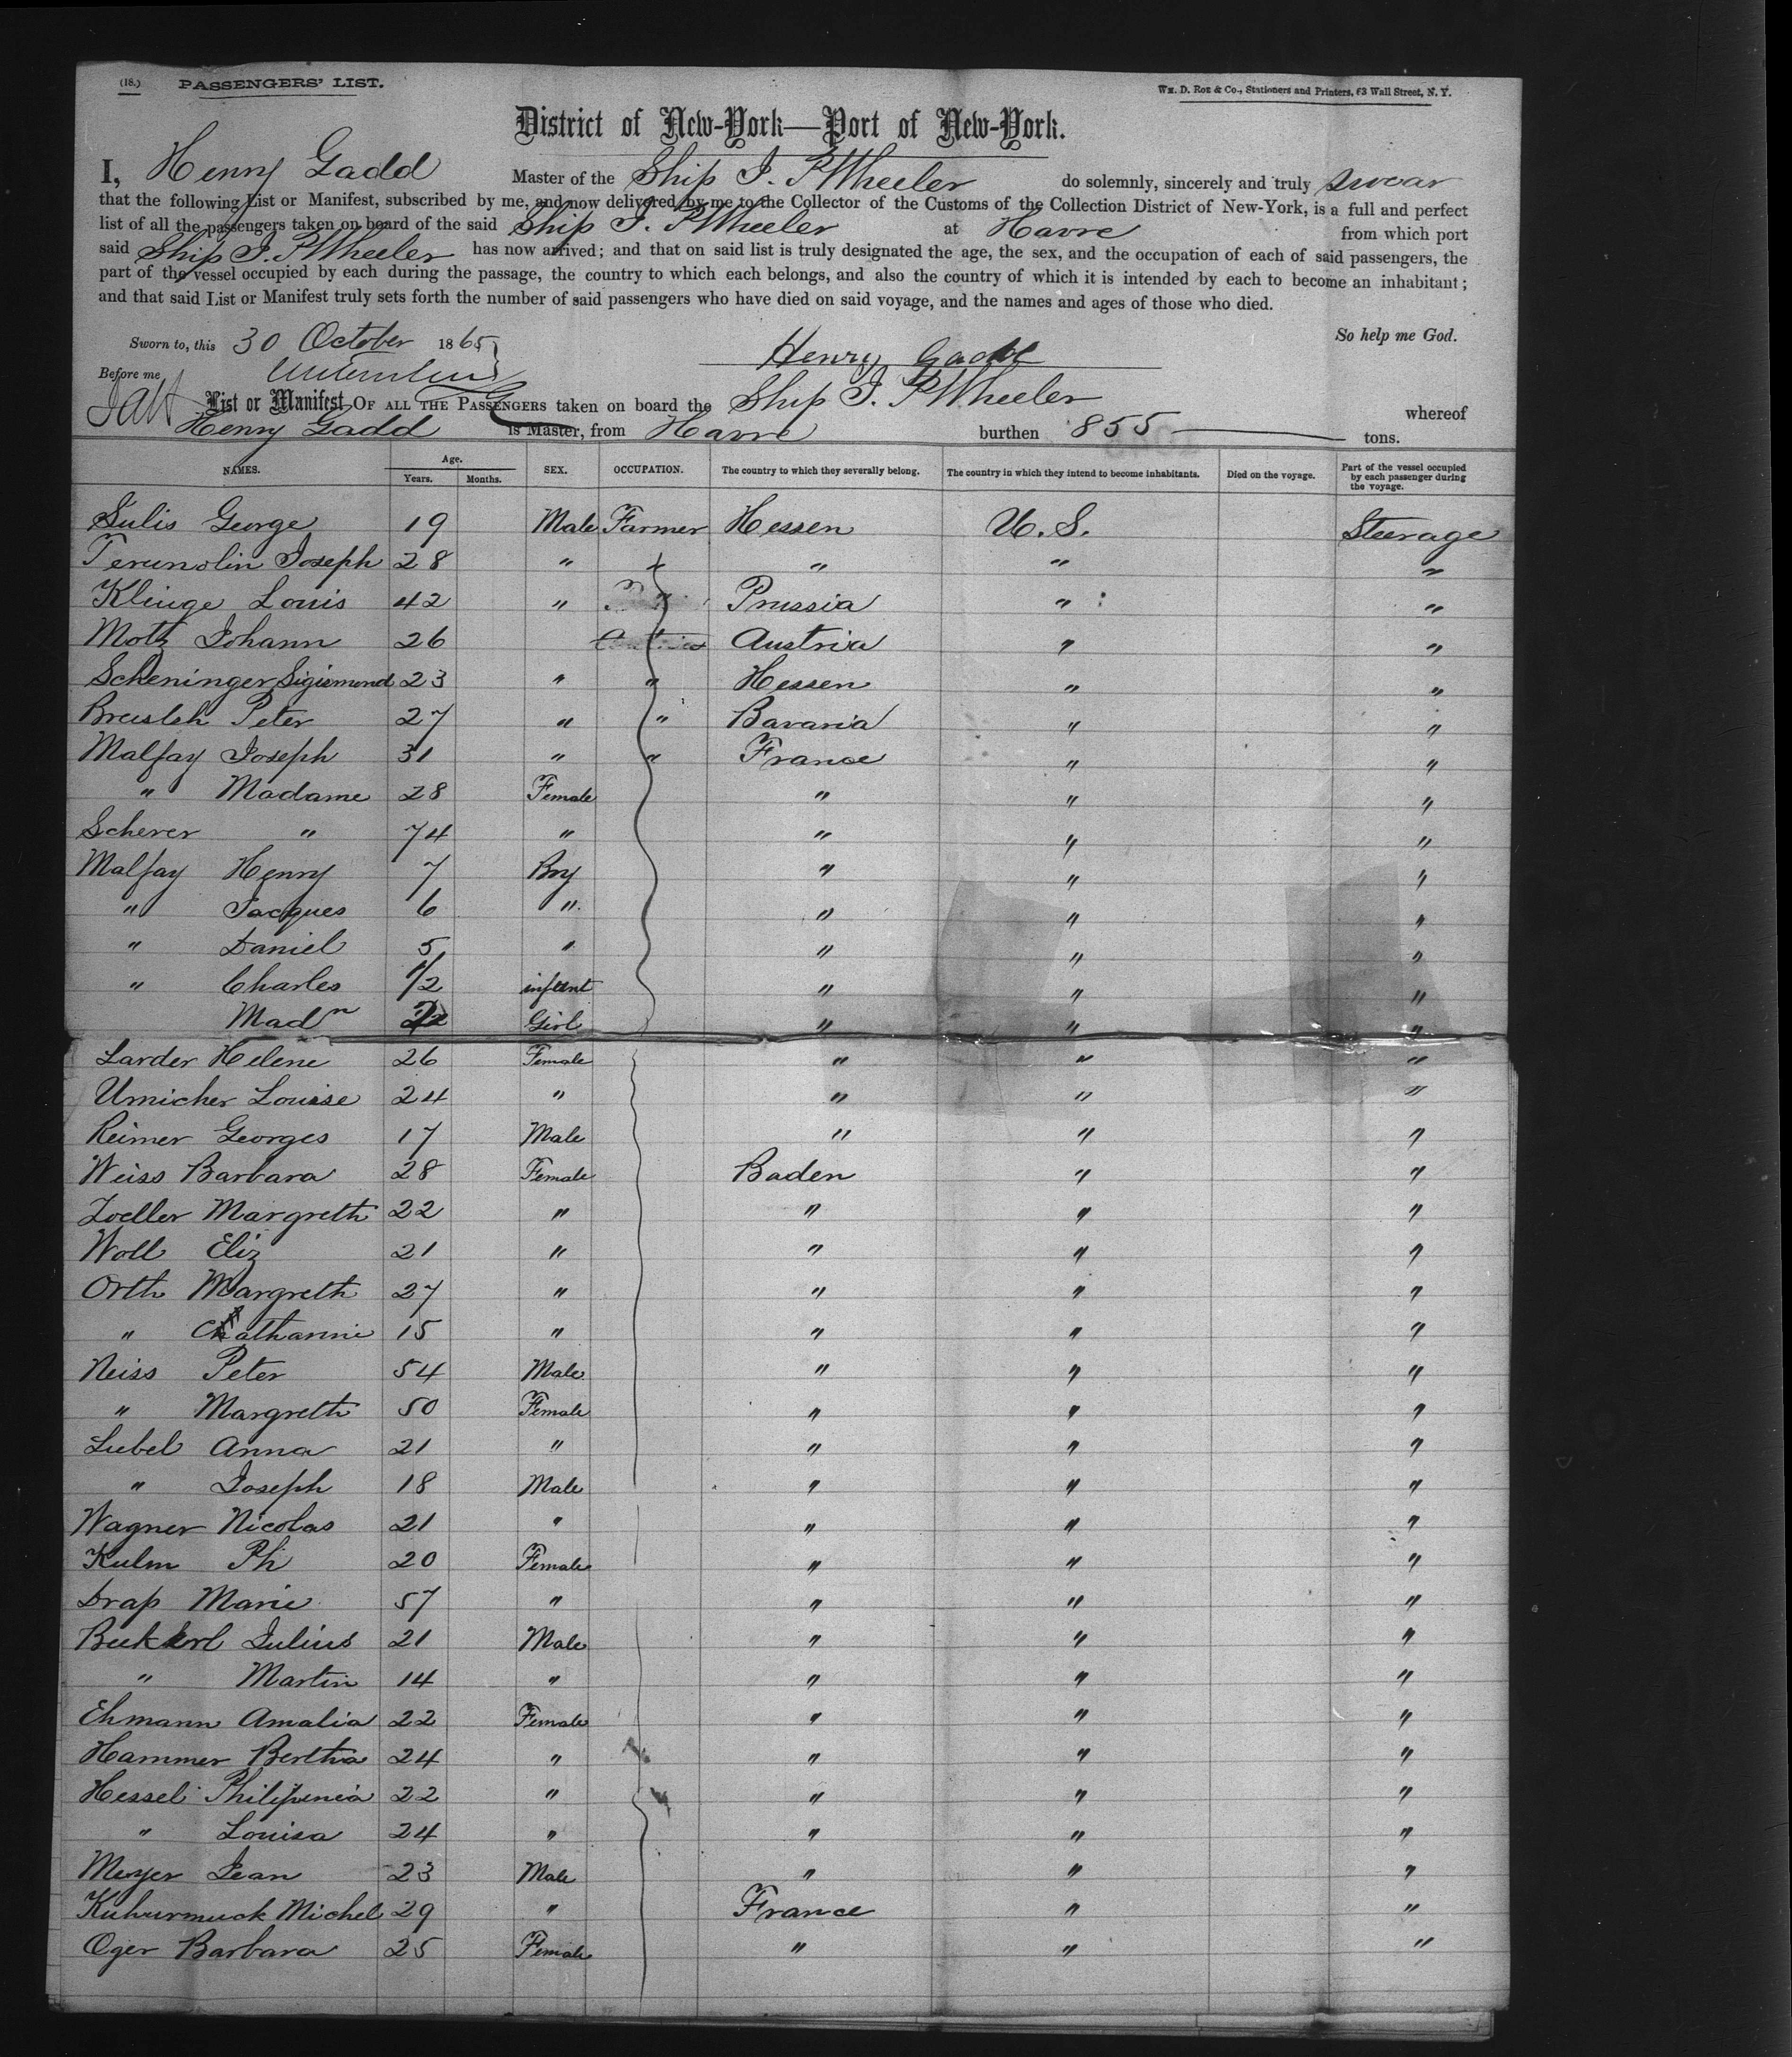 (18.) PASSENGERS' LIST.
Wm. D. Roe & Co., Stationers and Printers, 63 Wall Street, N. Y.
District of New-York—Port of New-York.
I, Henry Gadd Master of the Ship J. P Wheeler do solemnly, sincerely and truly swear
that the following List or Manifest, subscribed by me, and now delivered by me to the Collector of the Customs of the Collection District of New-York, is a full and perfect
list of all the passengers taken on board of the said Ship J. P Wheeler at Havre from which port
said Ship J. P Wheeler has now arrived; and that on said list is truly designated the age, the sex, and the occupation of each of said passengers, the
part of the vessel occupied by each during the passage, the country to which each belongs, and also the country of which it is intended by each to become an inhabitant;
and that said List or Manifest truly sets forth the number of said passengers who have died on said voyage, and the names and ages of those who died.
So help me God.
Sworn to, this 30 October 1865
Henry Gadd
Before me
List or Manifest OF ALL THE PASSENGERS taken on board the Ship J. P Wheeler whereof
Henry Gadd is Master, from Havre burthen 855 tons.
NAMES. Age. Years. Months. SEX. OCCUPATION. The country to which they severally belong. The country in which they intend to become inhabitants. Died on the voyage. Part of the vessel occupied by each passenger during the voyage.
Sulis George 19 Male Farmer Hessen U. S. Steerage
Joseph 28 " " " "
Klinge Louis 42 " Prussia " "
Motz Johann 26 Austria " "
Scheninger Sigismond 23 " " Hessen " "
Peter 27 " " Bavaria " "
Malfay Joseph 31 " " France " "
" Madame 28 Female " " "
Scherer " 74 " " " "
Malfay Henry 7 Boy " " "
" Jacques 6 " " " "
" Daniel 5 " " " "
" Charles 1/2 infant " " "
Mad Girl " " "
Larder Helene 26 Female " " "
Umicher Louise 24 " " " "
Reimer Georges 17 Male " " "
Weiss Barbara 28 Female Baden " "
Zoeller Margreth 22 " " " "
Woll Eliz 21 " " " "
Orth Margreth 27 " " " "
" Katharine 15 " " " "
Neiss Peter 54 Male " " "
" Margreth 50 Female " " "
Luebel Anna 21 " " " "
" Joseph 18 Male " " "
Wagner Nicolas 21 " " " "
Kulm Ph 20 Female " " "
Drap Marie 57 " " " "
Julius 21 Male " " "
" Martin 14 " " " "
Ehmann Amalia 22 Female " " "
Hammer Bertha 24 " " " "
Hessel Philipenia 22 " " " "
" Louisa 24 " " " "
Meyer Jean 23 Male " " "
Kuhurmuck Michel 29 " France " "
Oger Barbara 25 Female " " "